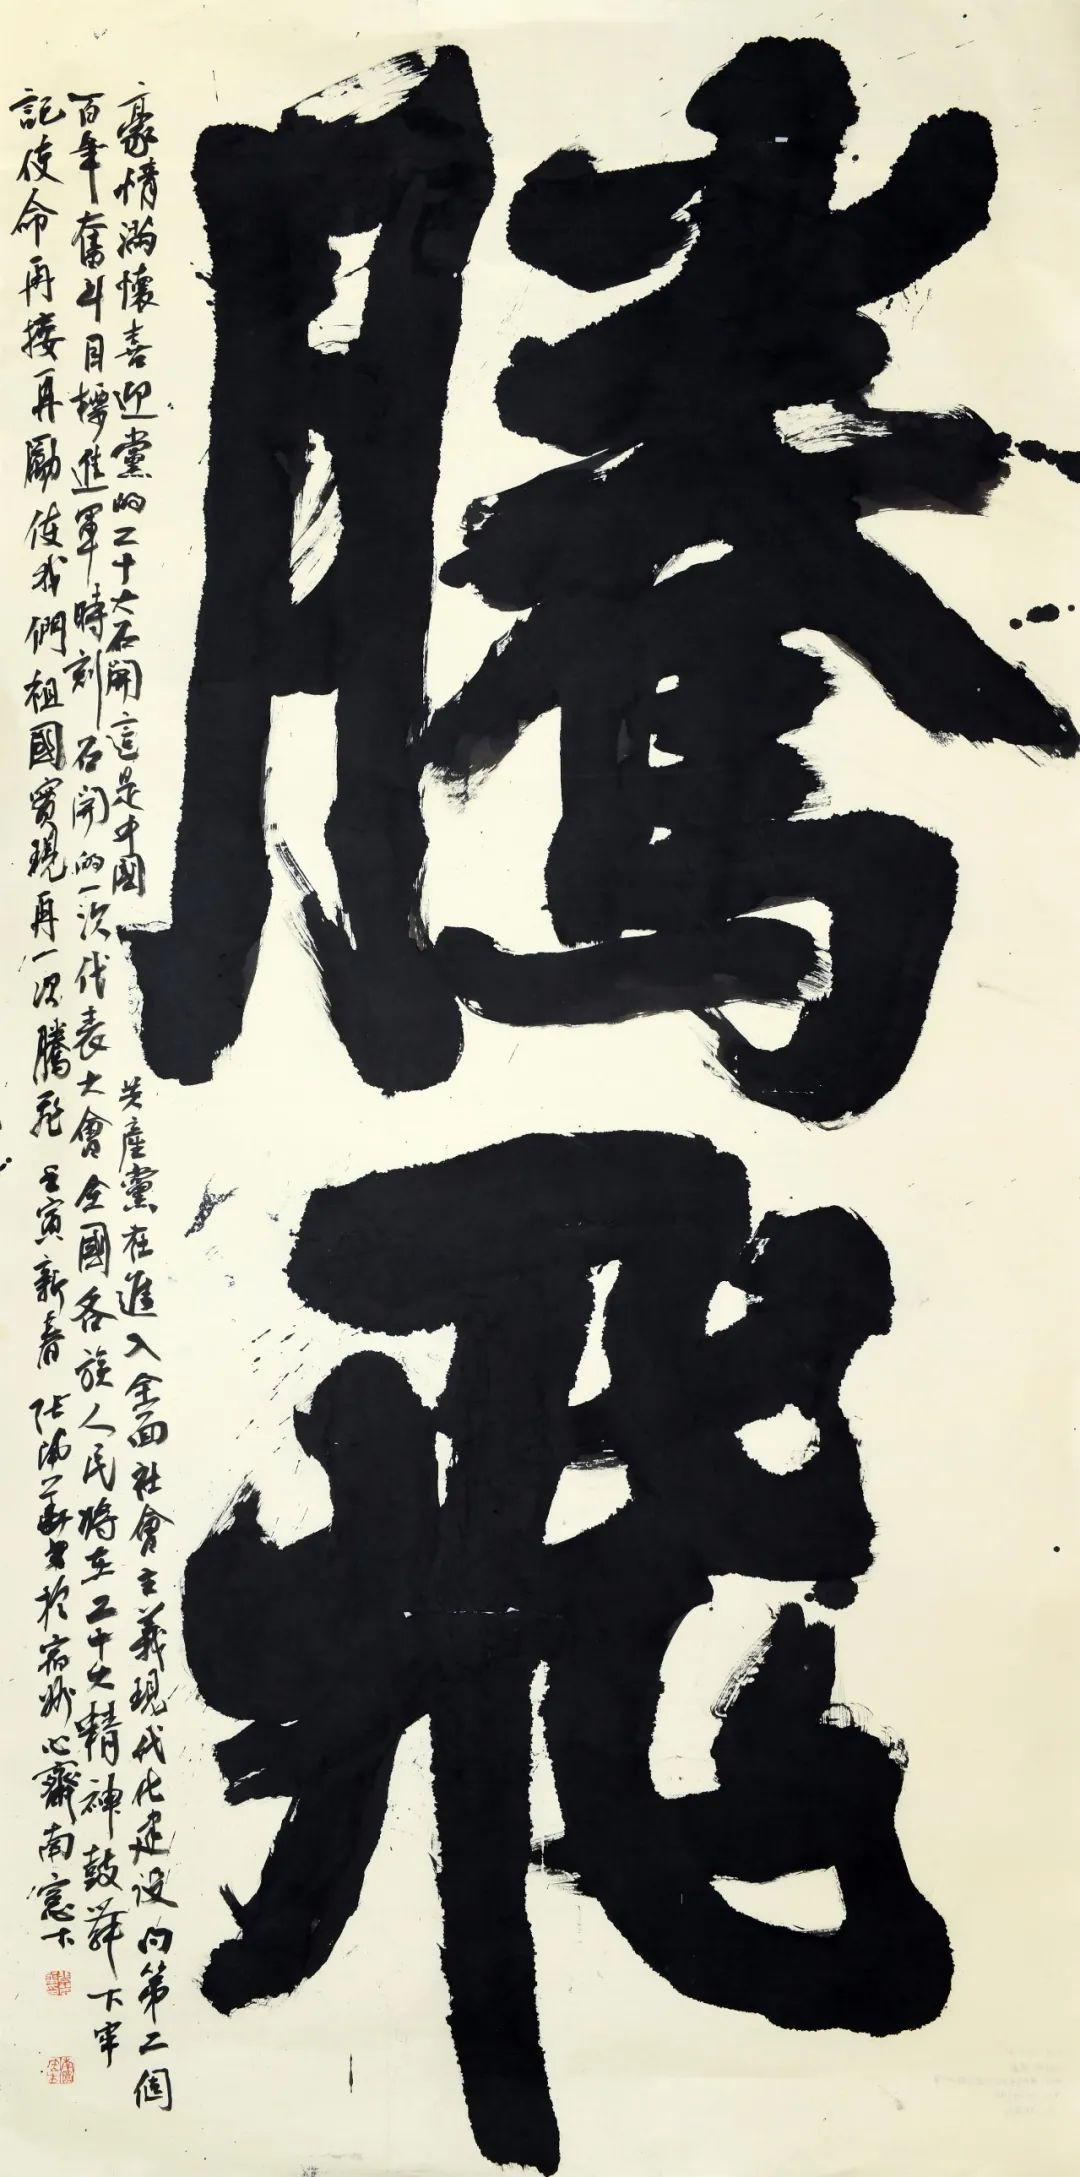 騰飛
豪情滿懷喜迎黨的二十大召開這是中國共產黨在進入全面社會主義現代化建設向第二個
百年奮斗目標進軍時刻召開的一次代表大會全國各族人民將在二十大精神鼓舞下牢
記使命再接再勵使我們祖國實現再一次騰飛 壬寅新春 張 書於宿州心齋南窗下